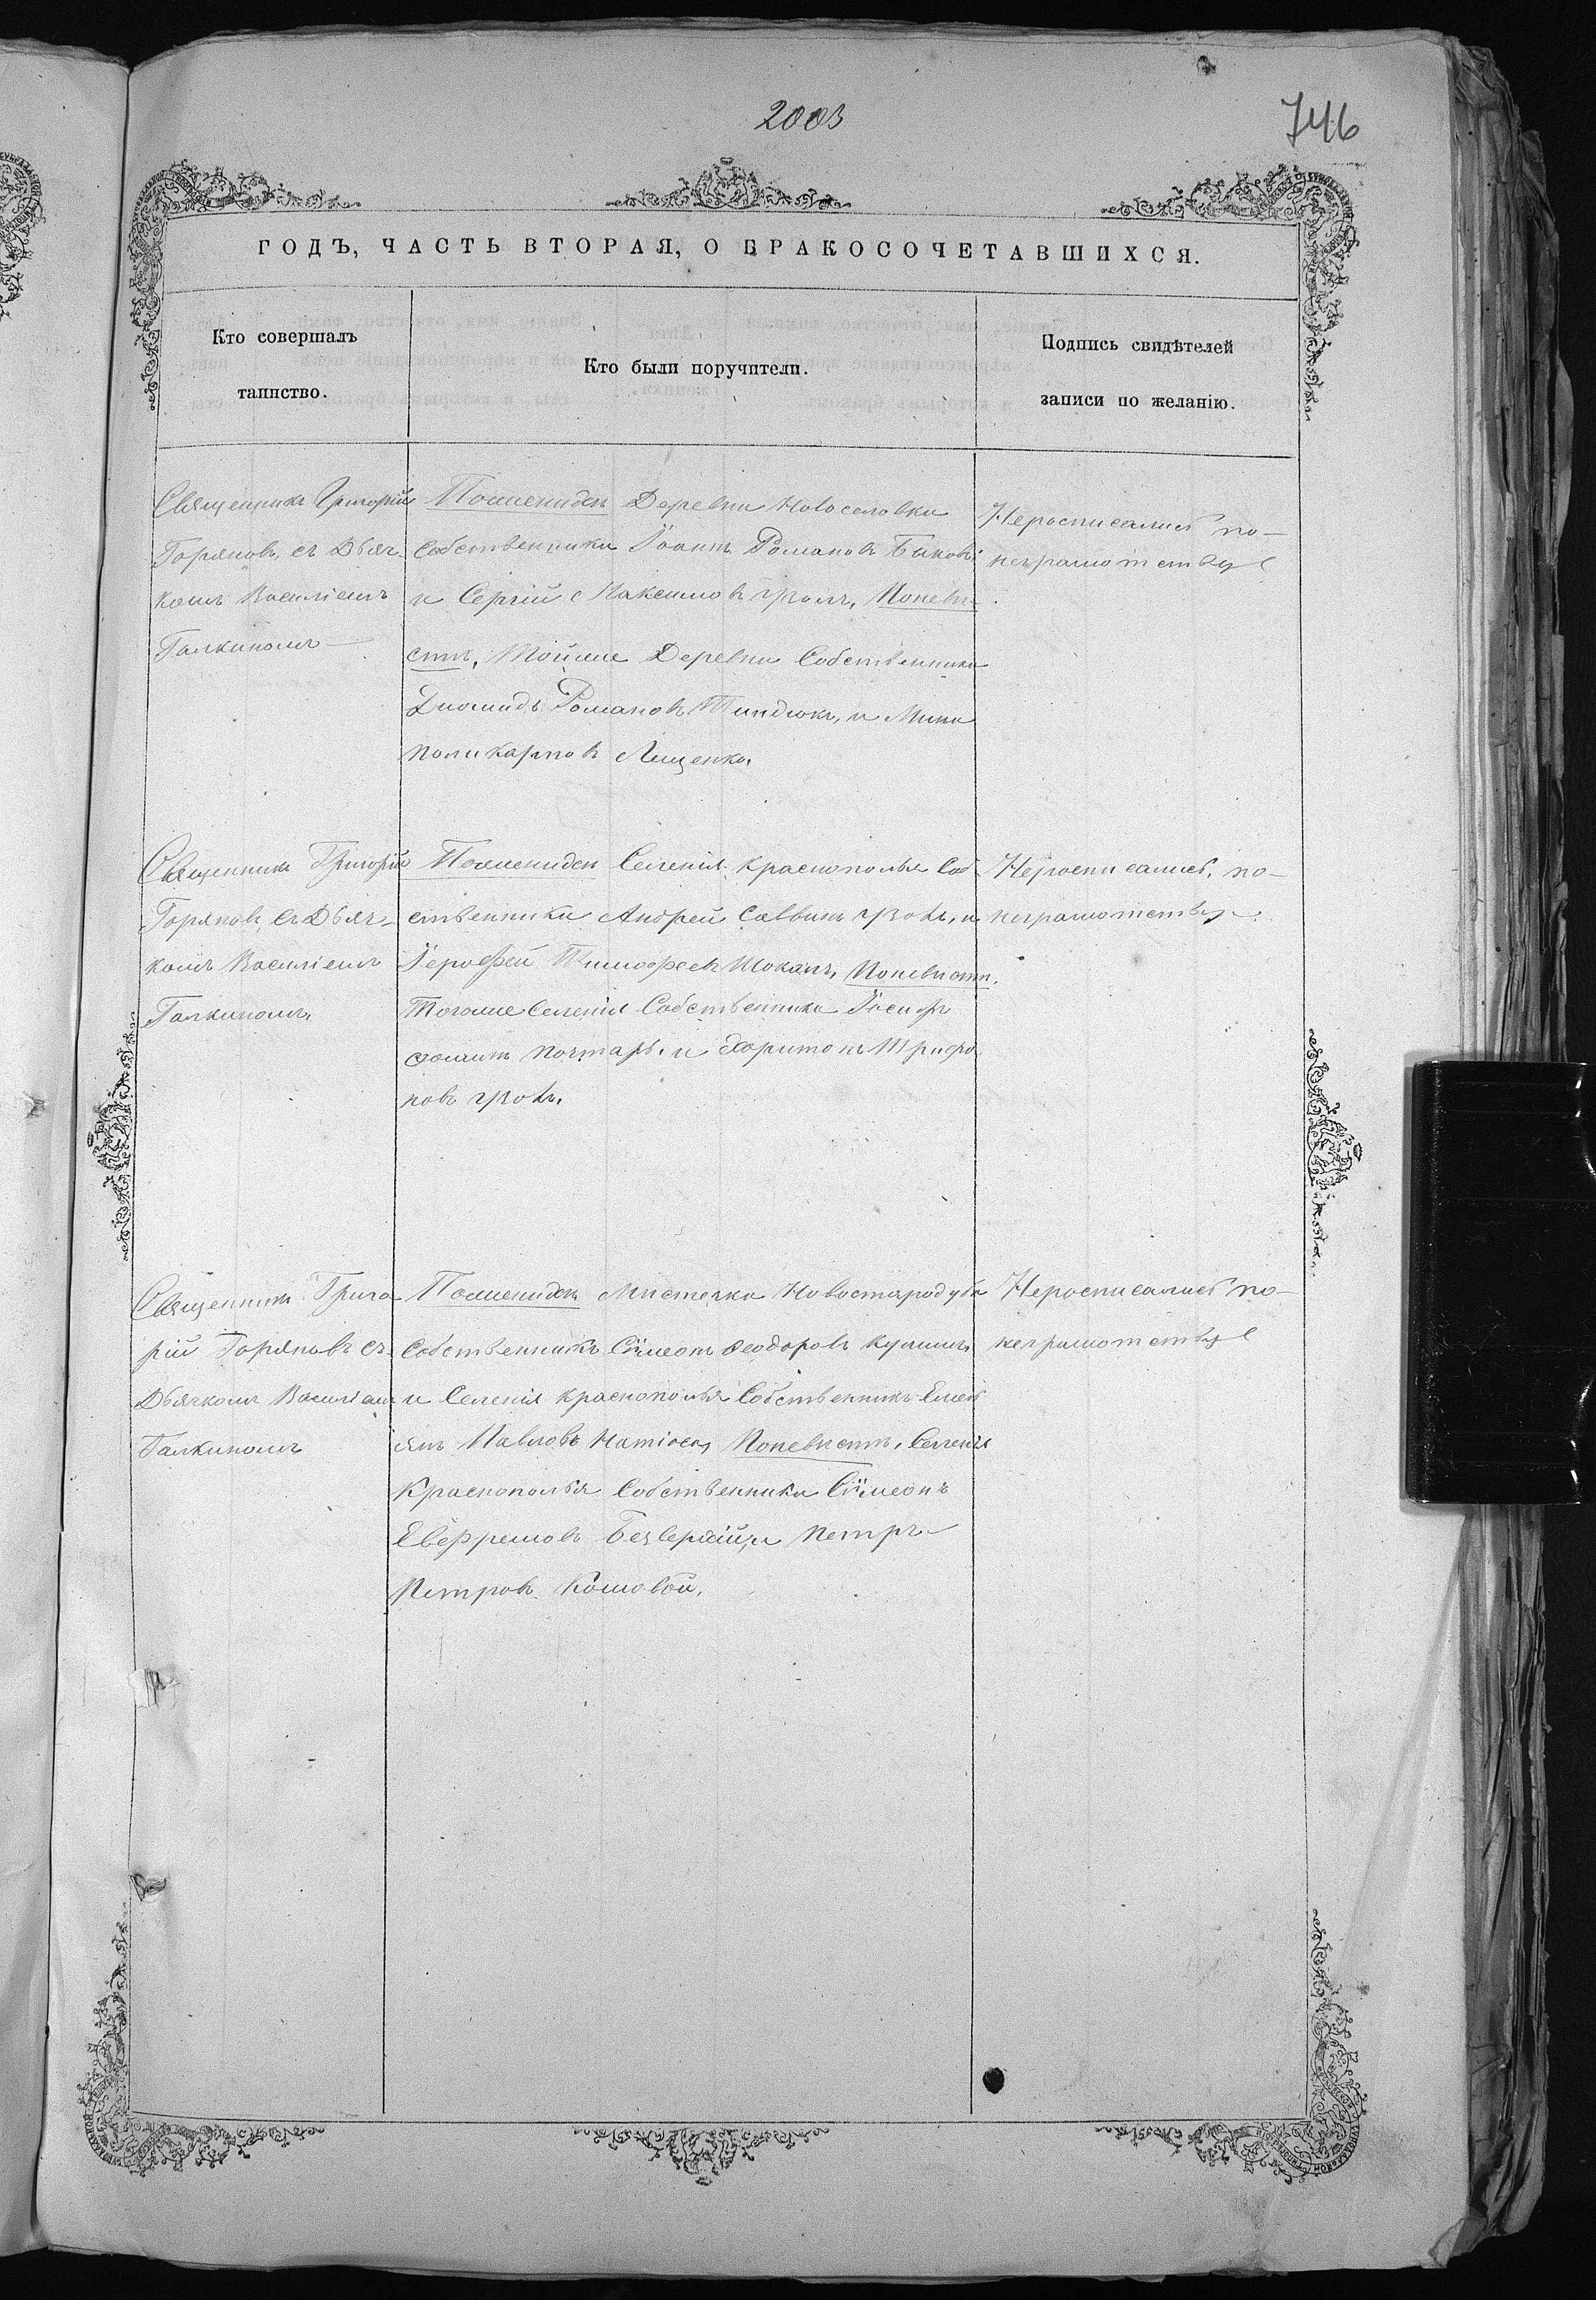 2003
746
ГОДЪ, ЧАСТЬ ВТОРАЯ, О БРАКОСОЧЕТАВШИХСЯ.
Кто совершалъ
таинство.
Кто были поручители.
Подпись свидѣтелей
записи по желанію.
Священникъ Григорій
Горяновъ, съ Дьяч-
комъ Василіемъ
Галкиномъ
Пожениден Деревни Новоселовки
Собственники Іоаннъ Романовъ
и Сергій Максимовъ Поневи-
стѣ, Тойже Деревни Собственники
Діомидъ Романовъ и Мина
Поликарповъ Лещенко.
Неросписались по-
неграмотству
Священникъ Григорій
Горяновъ, съ Дьяч-
комъ Василіемъ
Галкиномъ
Пожениден Селенія Краснополья Соб-
ственники Андрей Саввинъ и
Іерофей Тимофеевъ Поневистѣ.
Тогоже Селенія Собственники Іосифъ
Фоминъ Почтарь и Харитонъ Трифо-
новъ
Неросписались, по-
неграмотству
Священникъ Григо-
рій Горяновъ съ
Дьячкомъ Василіемъ
Галкиномъ
Пожениден Мистечка Новостародуба
Собственникъ Сѵмеонъ Феодоровъ
и Селенія Краснополья Собственникъ Емел-
іянъ Павловъ Поневистѣ, Селенія
Краснополья Собственники Сѵмеонъ
Евфремовъ и Петръ
Петровъ Кошовой.
Неросписались по-
неграмотству